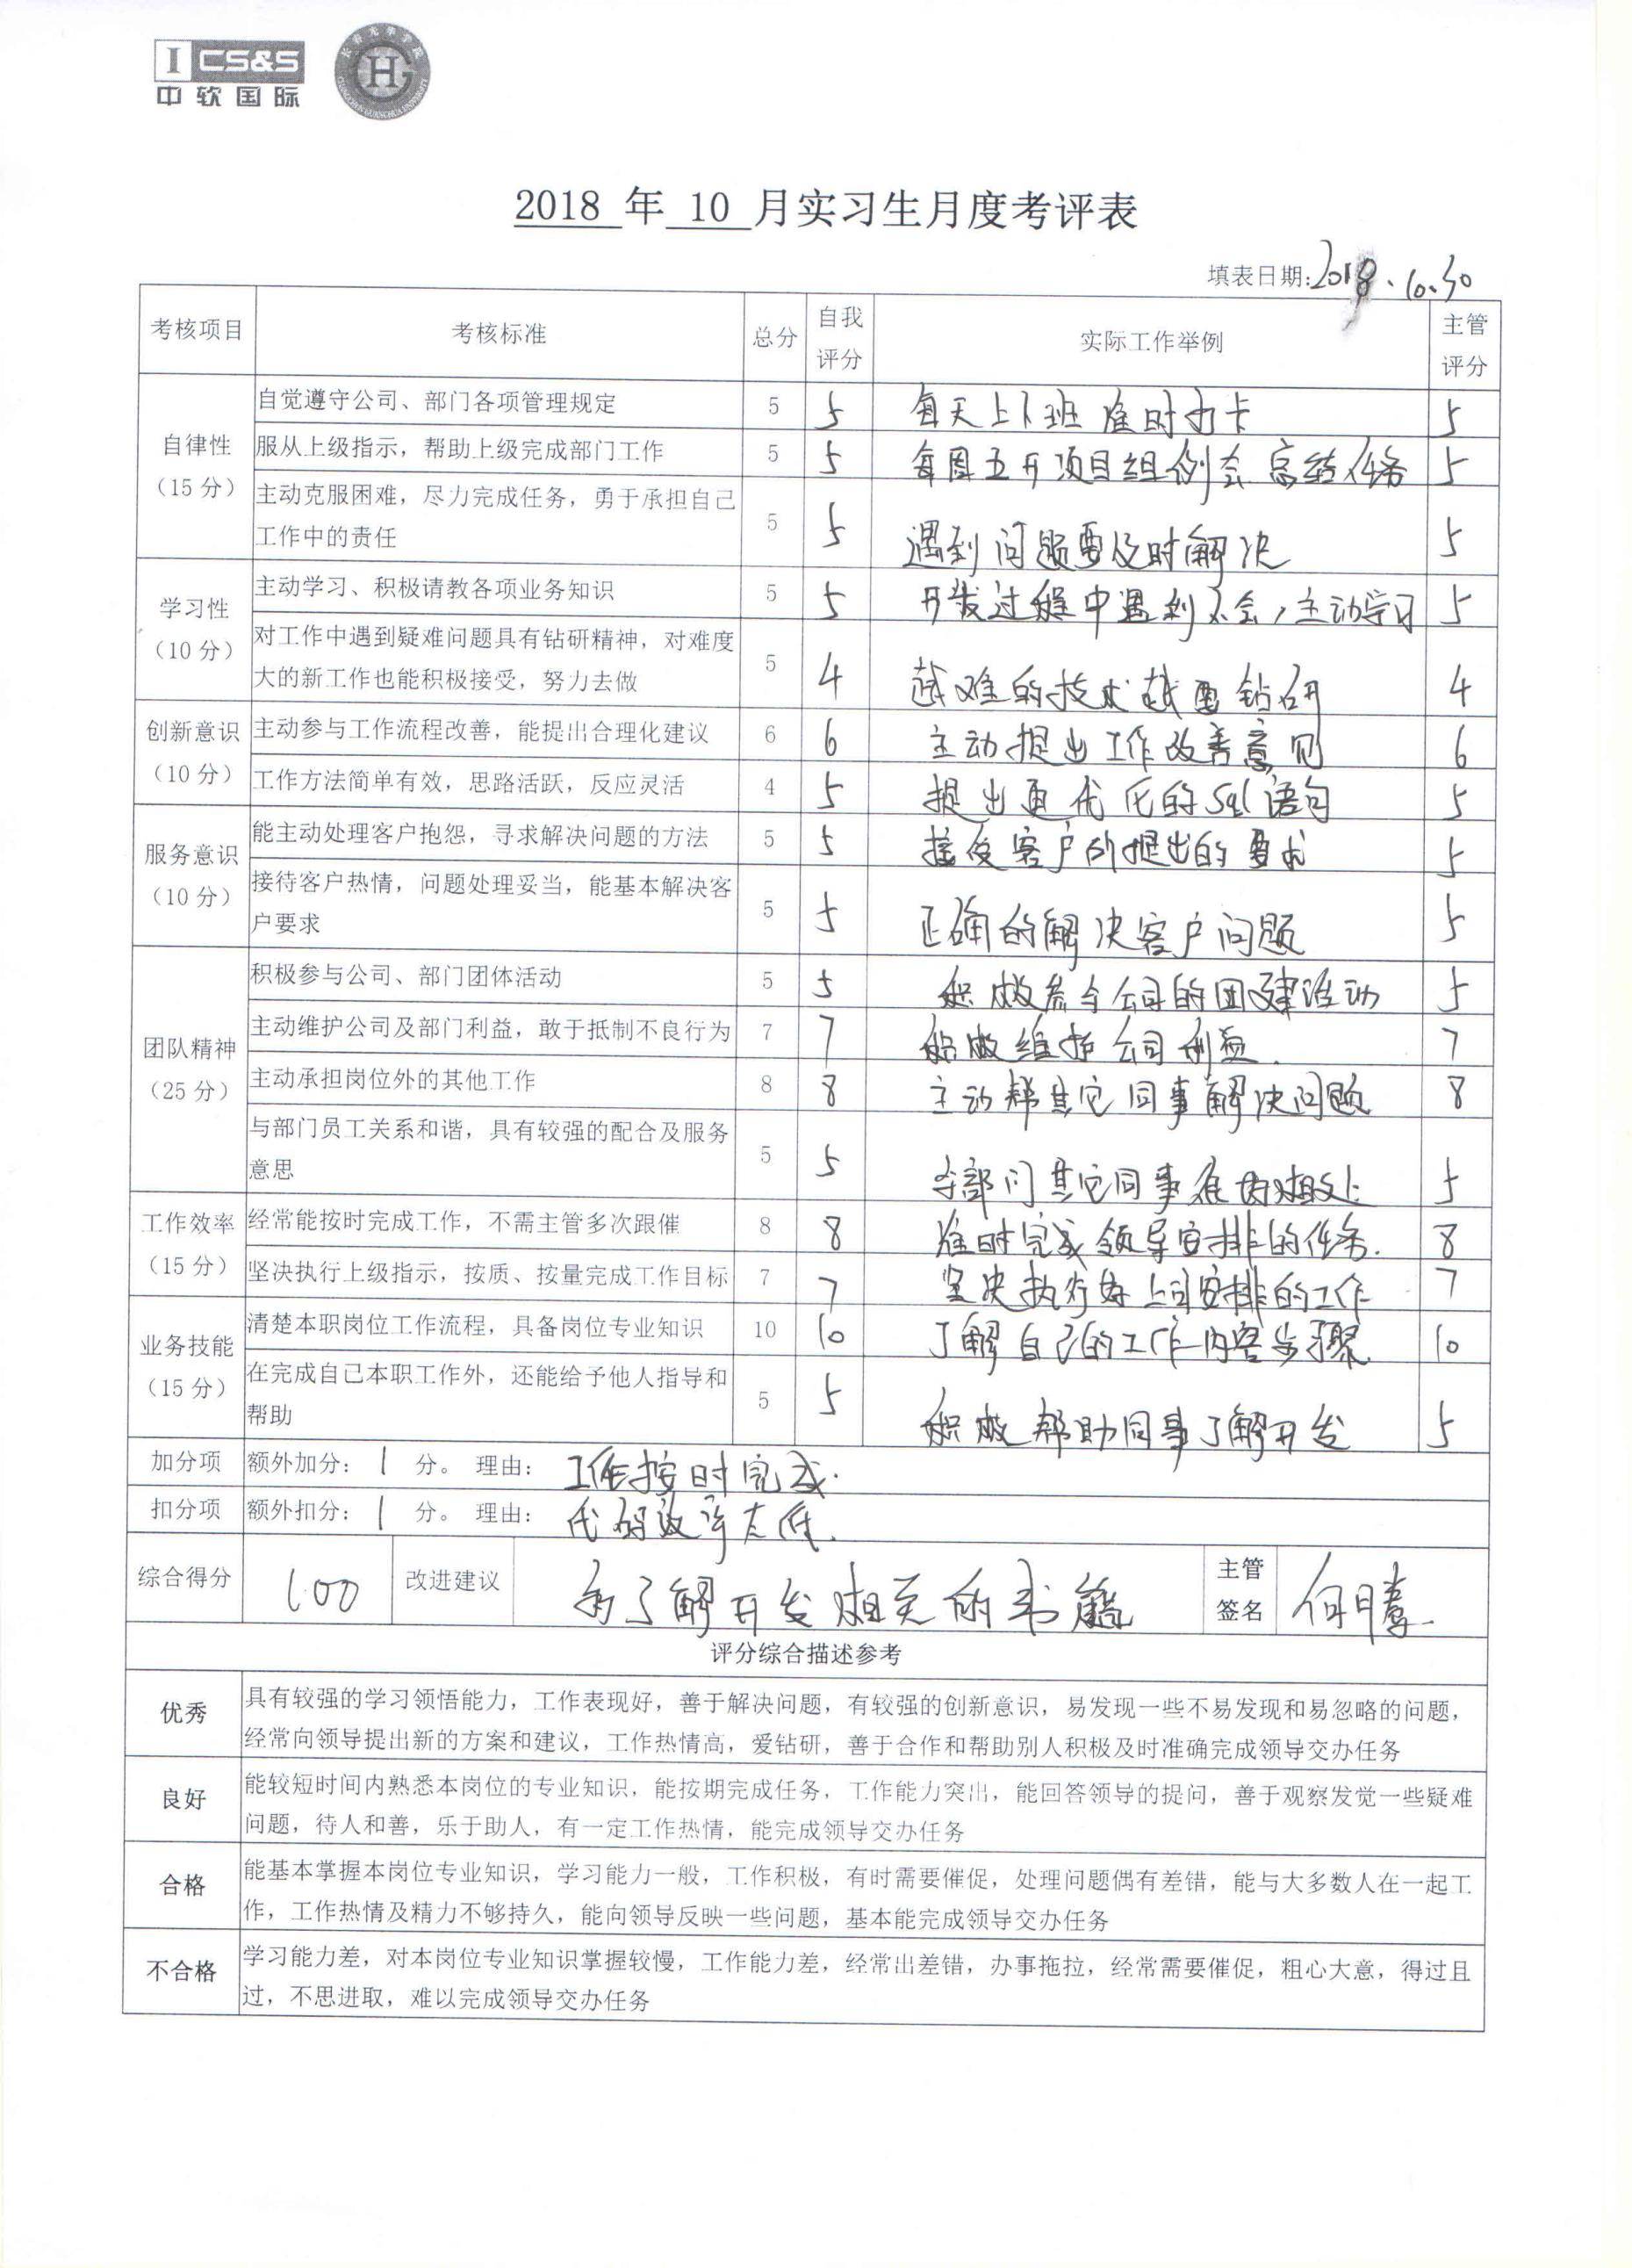 I CS&S
中软国际
长春光华学院
2018 年 10 月实习生月度考评表
填表日期:2018.10.30
考核项目 考核标准 总分 自我评分 实际工作举例 主管评分
自律性（15 分）
自觉遵守公司、部门各项管理规定 5 5 每天上下班准时打卡 5
服从上级指示，帮助上级完成部门工作 5 5 每周五开项目组例会总结任务 5
主动克服困难，尽力完成任务，勇于承担自己
工作中的责任 5 5 遇到问题要及时解决 5
学习性（10 分）
主动学习、积极请教各项业务知识 5 5 开发过程中遇到不会，主动学习 5
对工作中遇到疑难问题具有钻研精神，对难度
大的新工作也能积极接受，努力去做 5 4 越难的技术越要钻研 4
创新意识（10 分）
主动参与工作流程改善，能提出合理化建议 6 6 主动提出工作改善意见 6
工作方法简单有效，思路活跃，反应灵活 4 5 提出更优化的sql语句 5
服务意识（10 分）
能主动处理客户抱怨，寻求解决问题的方法 5 5 接受客户所提出的要求 5
接待客户热情，问题处理妥当，能基本解决客
户要求 5 5 正确的解决客户问题 5
团队精神（25 分）
积极参与公司、部门团体活动 5 5 积极参与公司的团建活动 5
主动维护公司及部门利益，敢于抵制不良行为 7 7 积极维护公司利益. 7
主动承担岗位外的其他工作 8 8 主动帮其它同事解决问题 8
与部门员工关系和谐，具有较强的配合及服务
意思 5 5 与部门其它同事友好相处 5
工作效率（15 分）
经常能按时完成工作，不需主管多次跟催 8 8 准时完成领导安排的任务. 8
坚决执行上级指示，按质、按量完成工作目标 7 7 坚决执行好上司安排的工作 7
业务技能（15 分）
清楚本职岗位工作流程，具备岗位专业知识 10 10 了解自己的工作内容步骤 10
在完成自己本职工作外，还能给予他人指导和
帮助 5 5 积极帮助同事了解开发 5
加分项 额外加分： 1 分。 理由： 工作按时完成.
扣分项 额外扣分： 1 分。 理由： 代码效率太低.
综合得分 100 改进建议 了解开发相关的书籍 主管签名 何
评分综合描述参考
优秀
具有较强的学习领悟能力，工作表现好，善于解决问题，有较强的创新意识，易发现一些不易发现和易忽略的问题，
经常向领导提出新的方案和建议，工作热情高，爱钻研，善于合作和帮助别人积极及时准确完成领导交办任务
良好
能较短时间内熟悉本岗位的专业知识，能按期完成任务，工作能力突出，能回答领导的提问，善于观察发觉一些疑难
问题，待人和善，乐于助人，有一定工作热情，能完成领导交办任务
合格
能基本掌握本岗位专业知识，学习能力一般，工作积极，有时需要催促，处理问题偶有差错，能与大多数人在一起工
作，工作热情及精力不够持久，能向领导反映一些问题，基本能完成领导交办任务
不合格
学习能力差，对本岗位专业知识掌握较慢，工作能力差，经常出差错，办事拖拉，经常需要催促，粗心大意，得过且
过，不思进取，难以完成领导交办任务